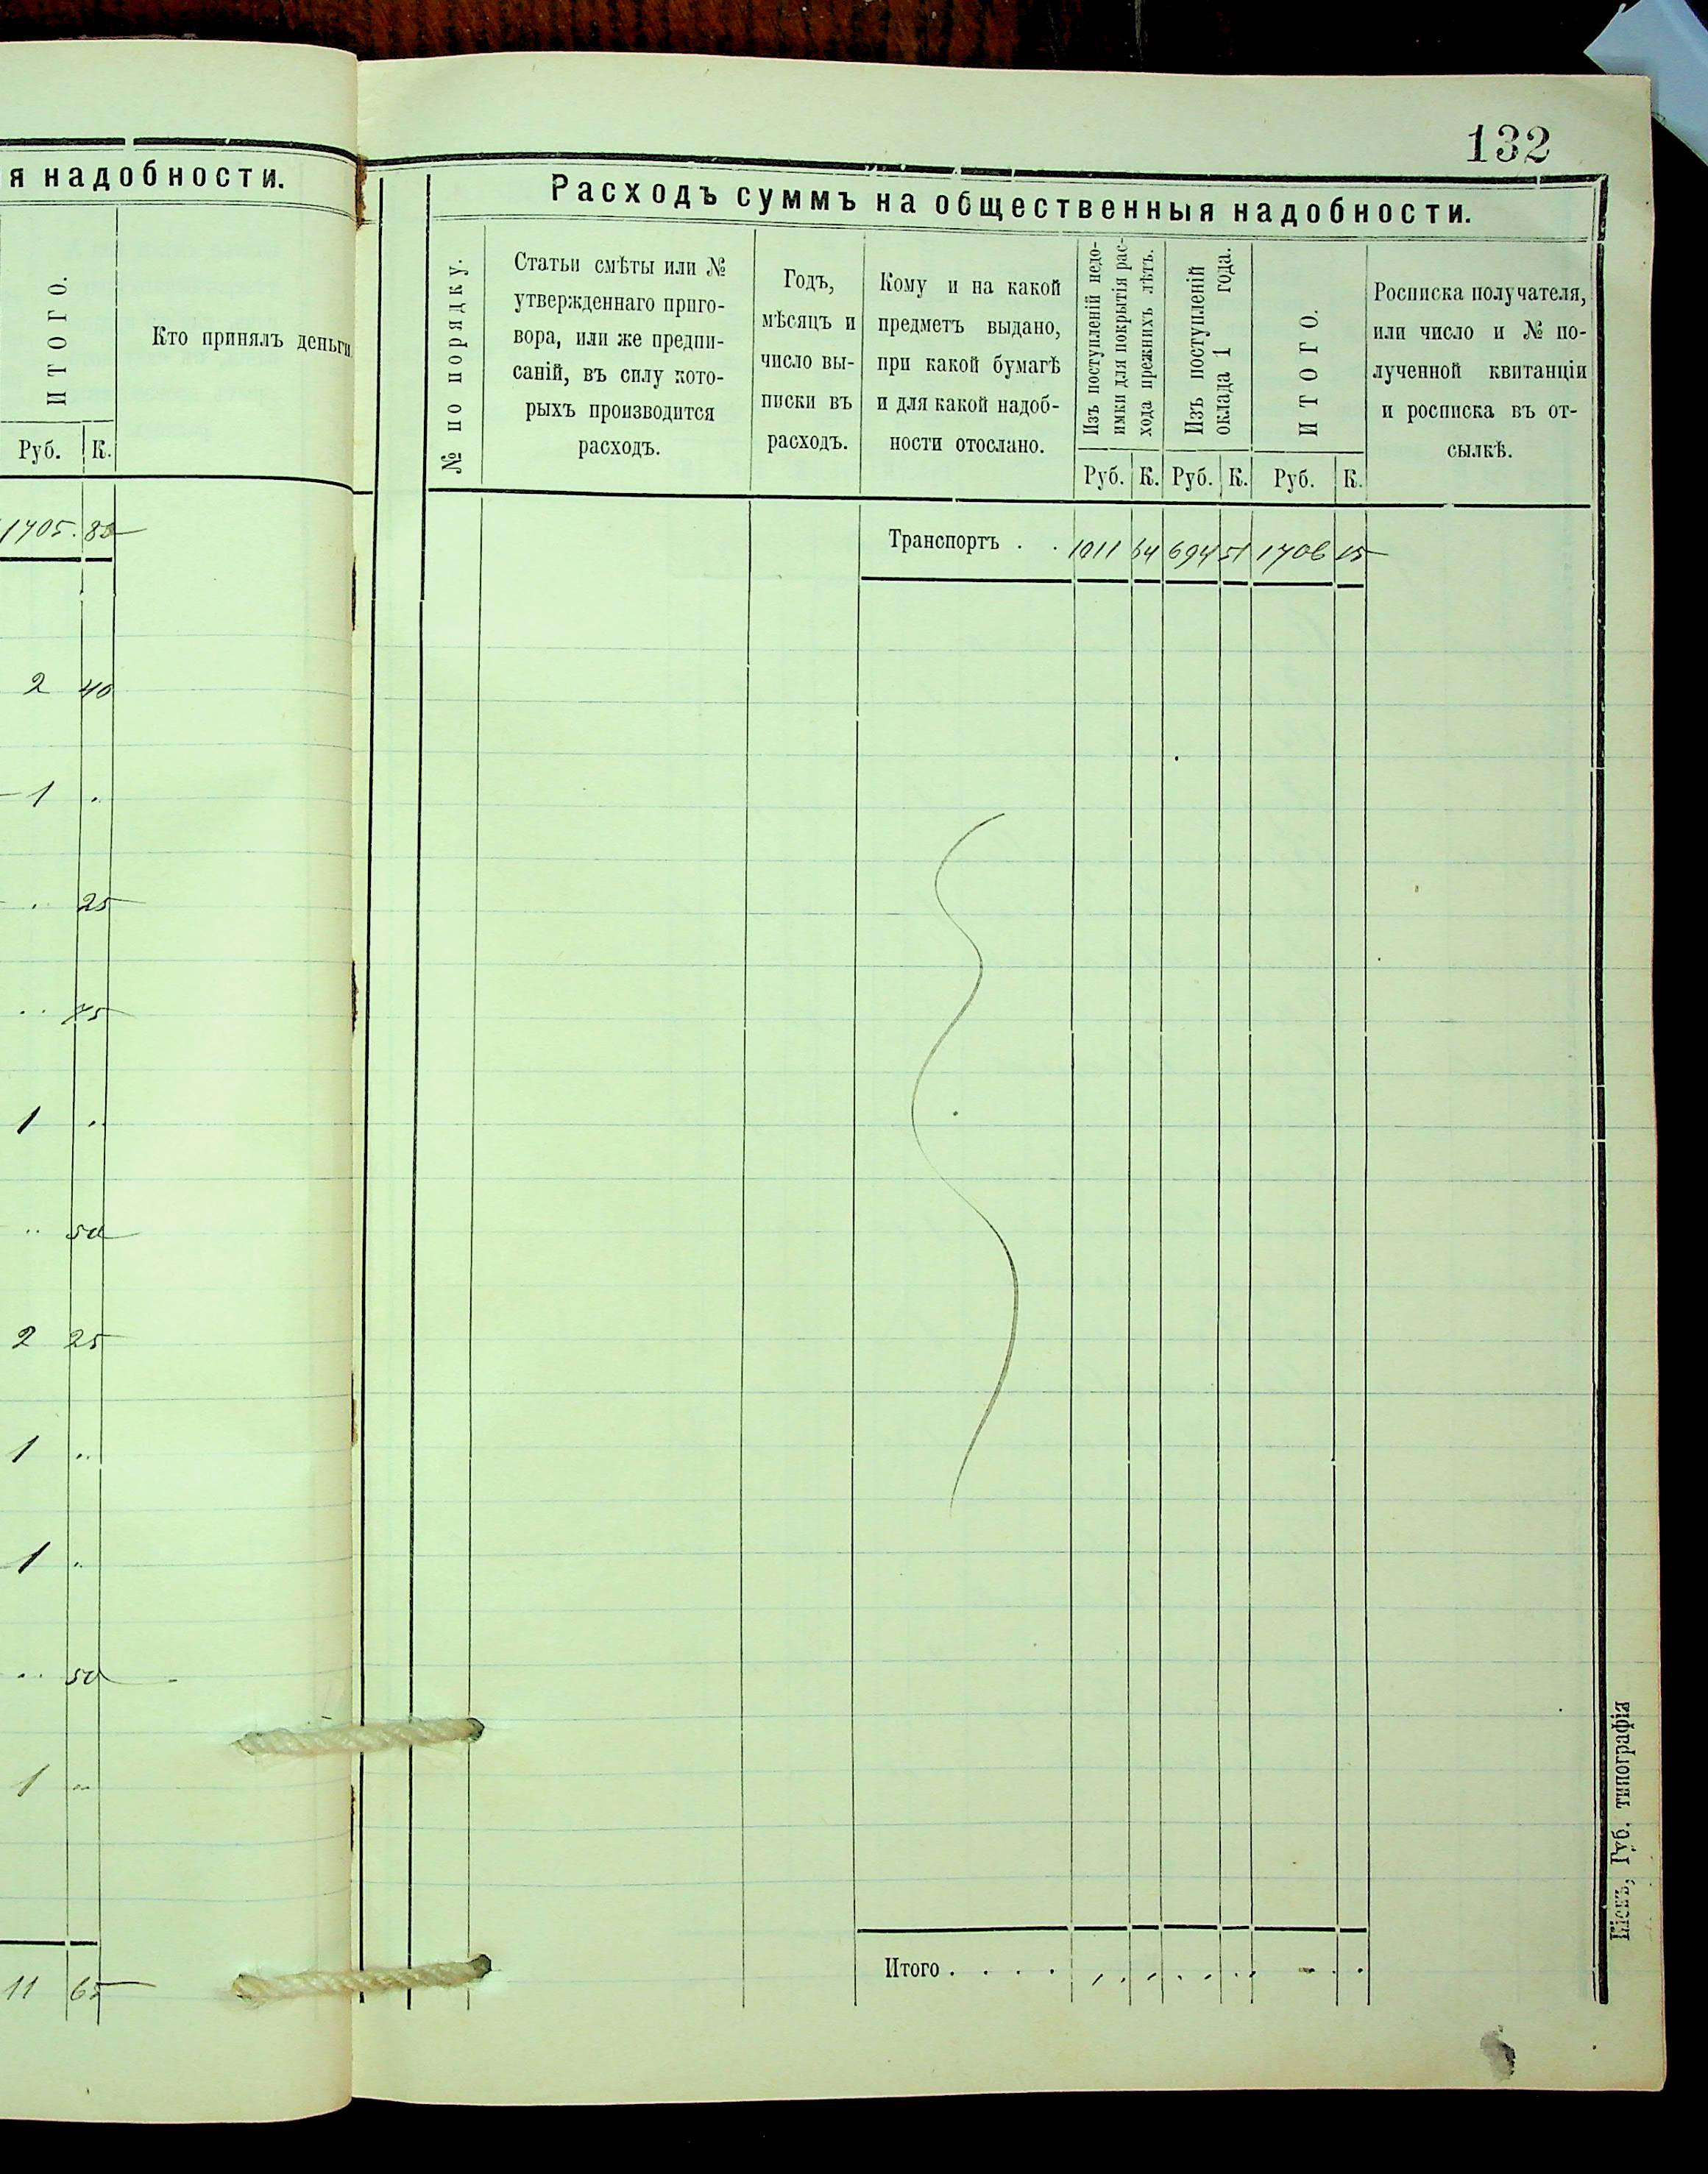 я надобности.
ИТОГО.
Кто принялъ деньги
Руб. К.
1705. 82
2 40
1 "
" 25
" 75
1 "
" 50
2 25
1 "
1 "
" 50
1 "
11 65
132
Расходъ суммъ на общественныя надобности.
№ по порядку.
Статьи смѣты или №
утвержденнаго приго-
вора, или же предпи-
саній, въ силу кото-
рыхъ производится
расходъ.
Годъ,
мѣсяцъ и
число вы-
писки въ
расходъ.
Кому и на какой
предметъ выдано,
при какой бумагѣ
и для какой надоб-
ности отослано.
Изъ поступленій недо-
имки для покрытія рас-
хода прежнихъ лѣтъ.
Изъ поступленій
оклада 1 года.
ИТОГО.
Росписка получателя,
или число и № по-
лученной квитанціи
и росписка въ от-
сылкѣ.
Руб. К. Руб. К. Руб. К.
Транспортъ . . 1011 64 694 51 1706 15
Итого . . . .
Губ. типографія